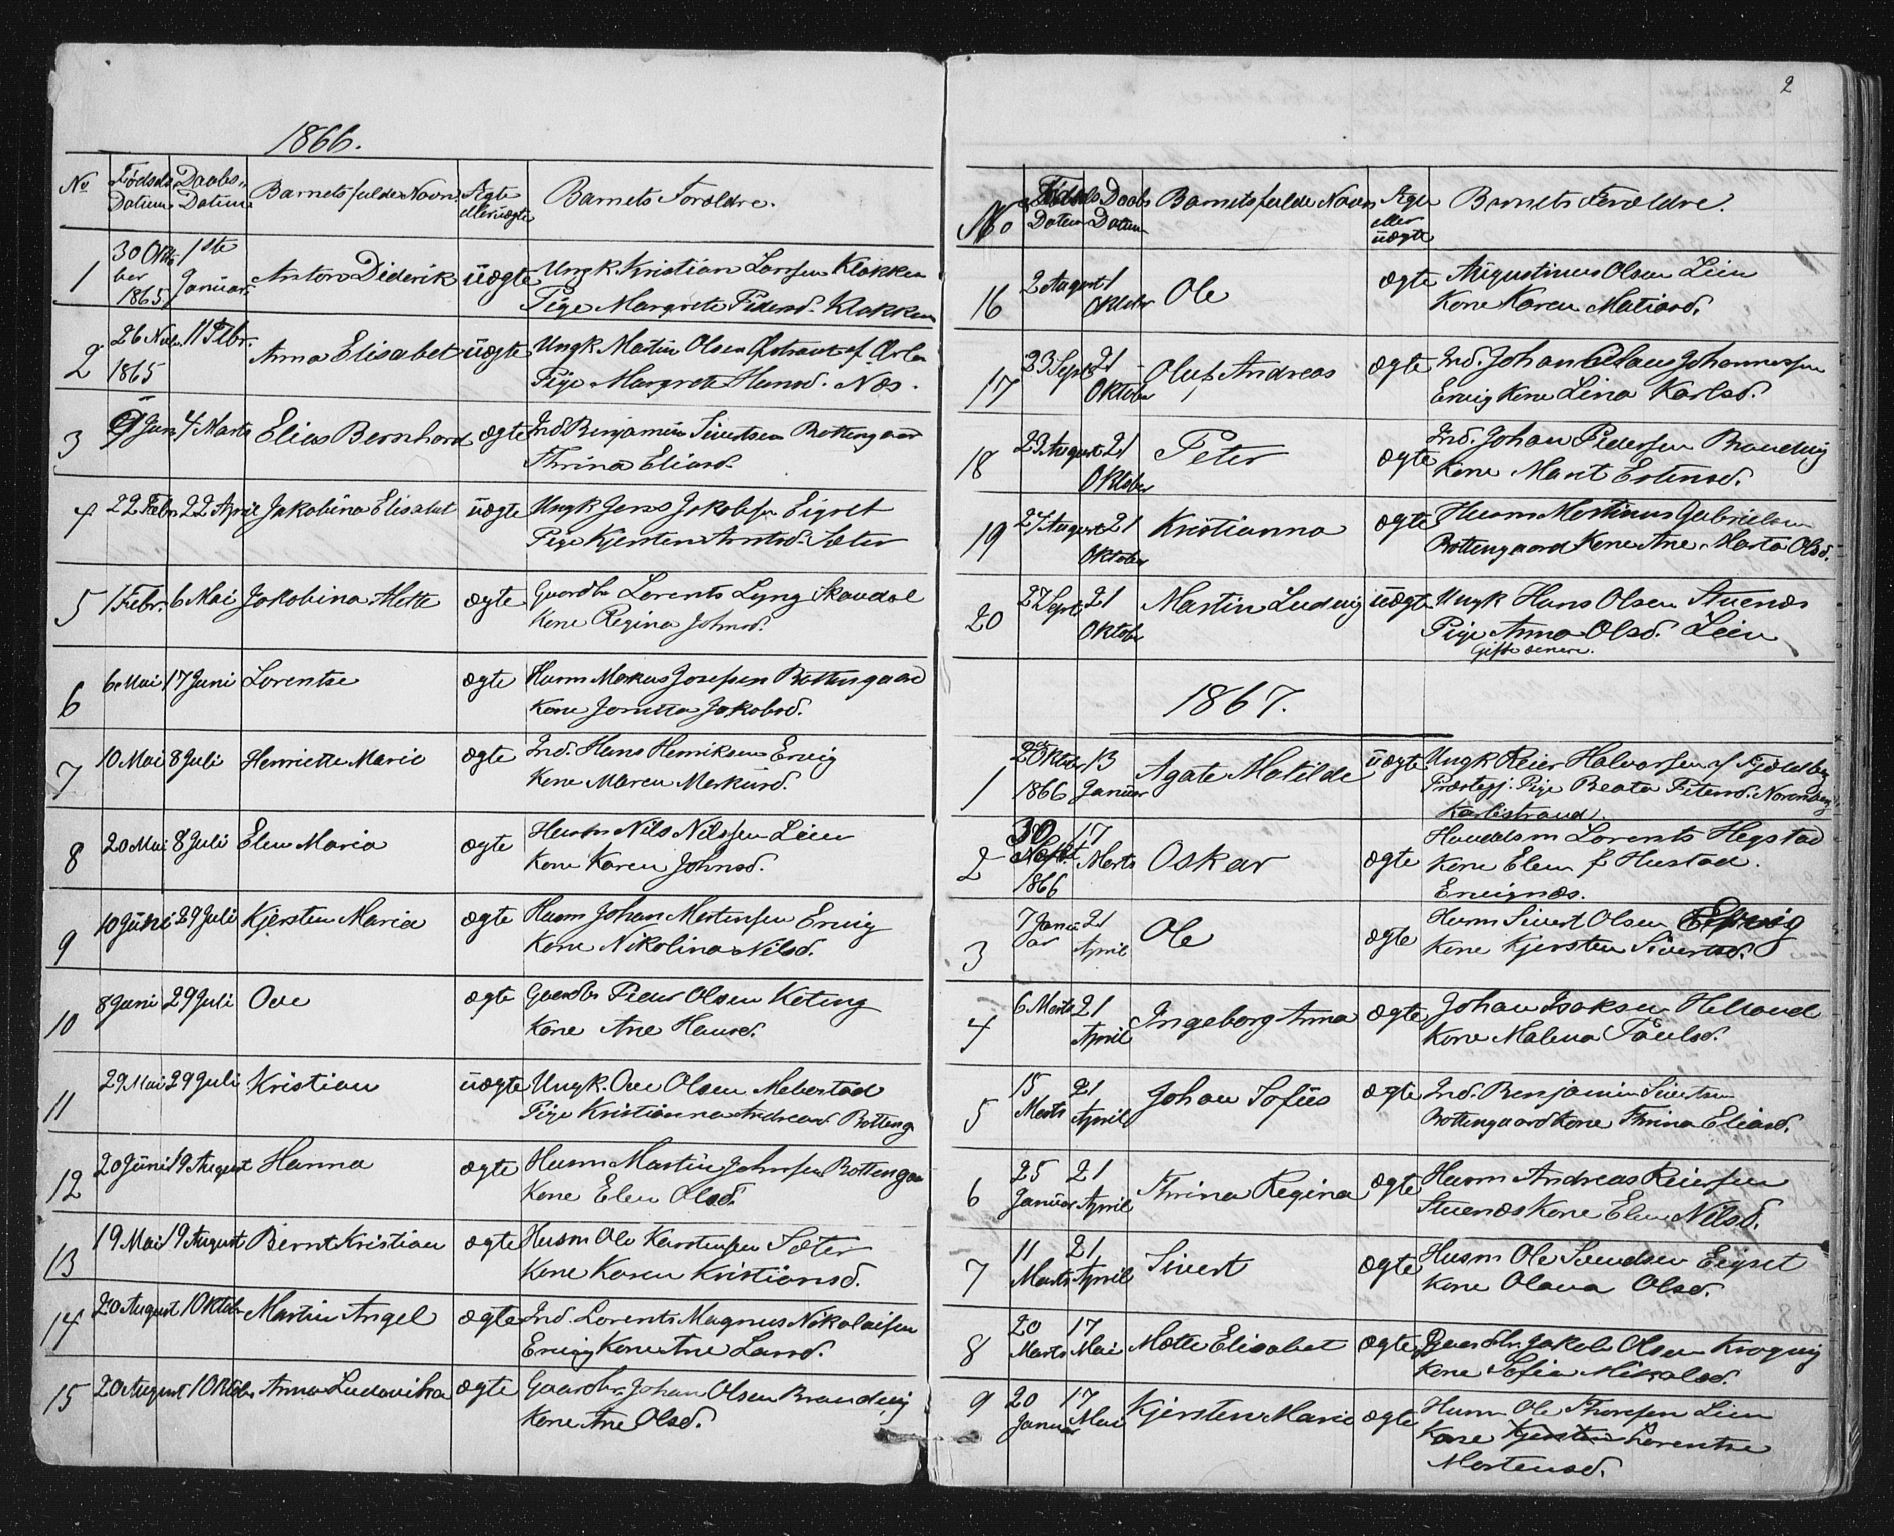 1866.
No Fødsels Datum Daabs Datum Barnets fulde Navn Ægte eller uægte Barnets Forældre.
1 30 Oktober 1865 1ste Januar Anton Diderik uægte Ungk. Kristian Larssen Klakken
Pige Margrete Pedersd. Klakken
2 26 Novb. 1865 11 Febr. Anna Elisabet uægte Ungk Martin Olsen af Ørlan
Pige Margrete Hansd. Næs.
3 Jan 4 Marts Elias Bernhard ægte Ind. Benjamin Sivertsen Bottengaard
Thrina Eliasd.
4 22 Febr 22 April Jakobina Elisabet uægte Ungk Jens Jakobsen Eigset
Pige Kjersten Arntsd. Sæter
5 1 Febr. 6 Mai Jakobina Mette ægte Gaardbr Lorents Lyng Skavdal
Kone Regina Johnsd.
6 6 Mai 17 Juni Lorentse ægte Husm Markus Josefsen Bottengaard
Kone Jakobsd.
7 10 Mai 8 Juli Henriette Marie ægte Ind. Hans Henriksen Ervig
Kone Maren Markusd.
8 20 Mai 8 Juli Elen Maria ægte Husm Nils Nilssen Leien
Kone Karen Johnsd.
9 10 Juni 29 Juli Kjersten Maria ægte Husm Johan Mortensen Ervig
Kone Nikolina Nilsd.
10 8 Juni 29 Juli Ove ægte Gaardbr Peder Olsen Keting
Kone Ane Hansd.
11 29 Mai 29 Juli Kristian uægte Ungk. Ove Olsen Mebostad
Pige Kristianna Andreasd Botteng
12 20 Juni 19 August Hanna ægte Husm Martin Johnsen Bottengaa
Kone Elen Olsd.
13 19 Mai 19 August Bernt Kristian ægte Husm Ole Karstensen Sæter
Kone Karen Kristiansd.
14 20 August 1 Oktbr Martin Angel ægte Ind. Lorents Magnus Nikolaisen
Ervig Kone Ane Larsd.
15 20 August 1 Oktbr Anna Ludovika ægte Gaardbr. Johan Olsen Brandvig
Kone Ane Olsd.
2
No Fødsels Datum Daabs Datum Barnets fulde Navn Ægte eller uægte Barnets Forældre.
16 2 August 1 Oktober Ole ægte Augustinus Olsen Leien
Kone Karen Matiasd.
17 23 Septb 21 Oktober Oluf Andreas ægte Ind. Johan Johannessen
Ervig Kone Lina Karlsd.
18 23 August 21 Oktober Peter ægte Ind. Johan Pedersen Brandvig
Kone Marit Estensd.
19 27 August 21 Oktober Kristianna ægte Husm Martinus Gabrielsen
Bottengaard Kone Ane Marta Olsd.
20 27 Sept 21 Oktober Martin Ludvig uægte Ungk Hans Olsen Stuenæs
Pige Anna Olsd. Leien
Gifte senere.
1867.
1 Oktbr 1866 13 Januar Agate Matilde uægte Ungk Reier Halvorsen af Fjeldberg
Præstegj. Pige Beata Petersd.
Karlestrand.
2 30 1866 17 Marts Oskar ægte Handelsm Lorents Hegstad
Kone Elen f Hustad.
Ervignæs.
3 7 Januar 21 April Ole ægte Husm Sivert Olsen Ervig
Kone Kjersten Sivertsd.
4 6 Marts 21 April Ingeborg Anna ægte Johan Isaksen Helland
Kone Malena Paulsd.
5 15 Marts 21 April Johan Sofus ægte Ind. Benjamin Sivertsen
Bottengaard Kone Thrina Eliasd.
6 25 Januar 21 April Thrina Regina ægte Husm Andreas Reiersen
Stuenæs Kone Elen Nilsd.
7 11 Marts 21 April Sivert ægte Husm Ole Sivertsen Eigset
Kone Olava Olsd.
8 20 Marts 17 Mai Mette Elisabet ægte Gaardbr. Jakob Olsen Krogvig
Kone Sofia Mikalsd.
9 20 Januar 17 Mai Kjersten Marie ægte Husm Ole Thoresen Leien
Kone Kjersten Lorentse
Mortensd.